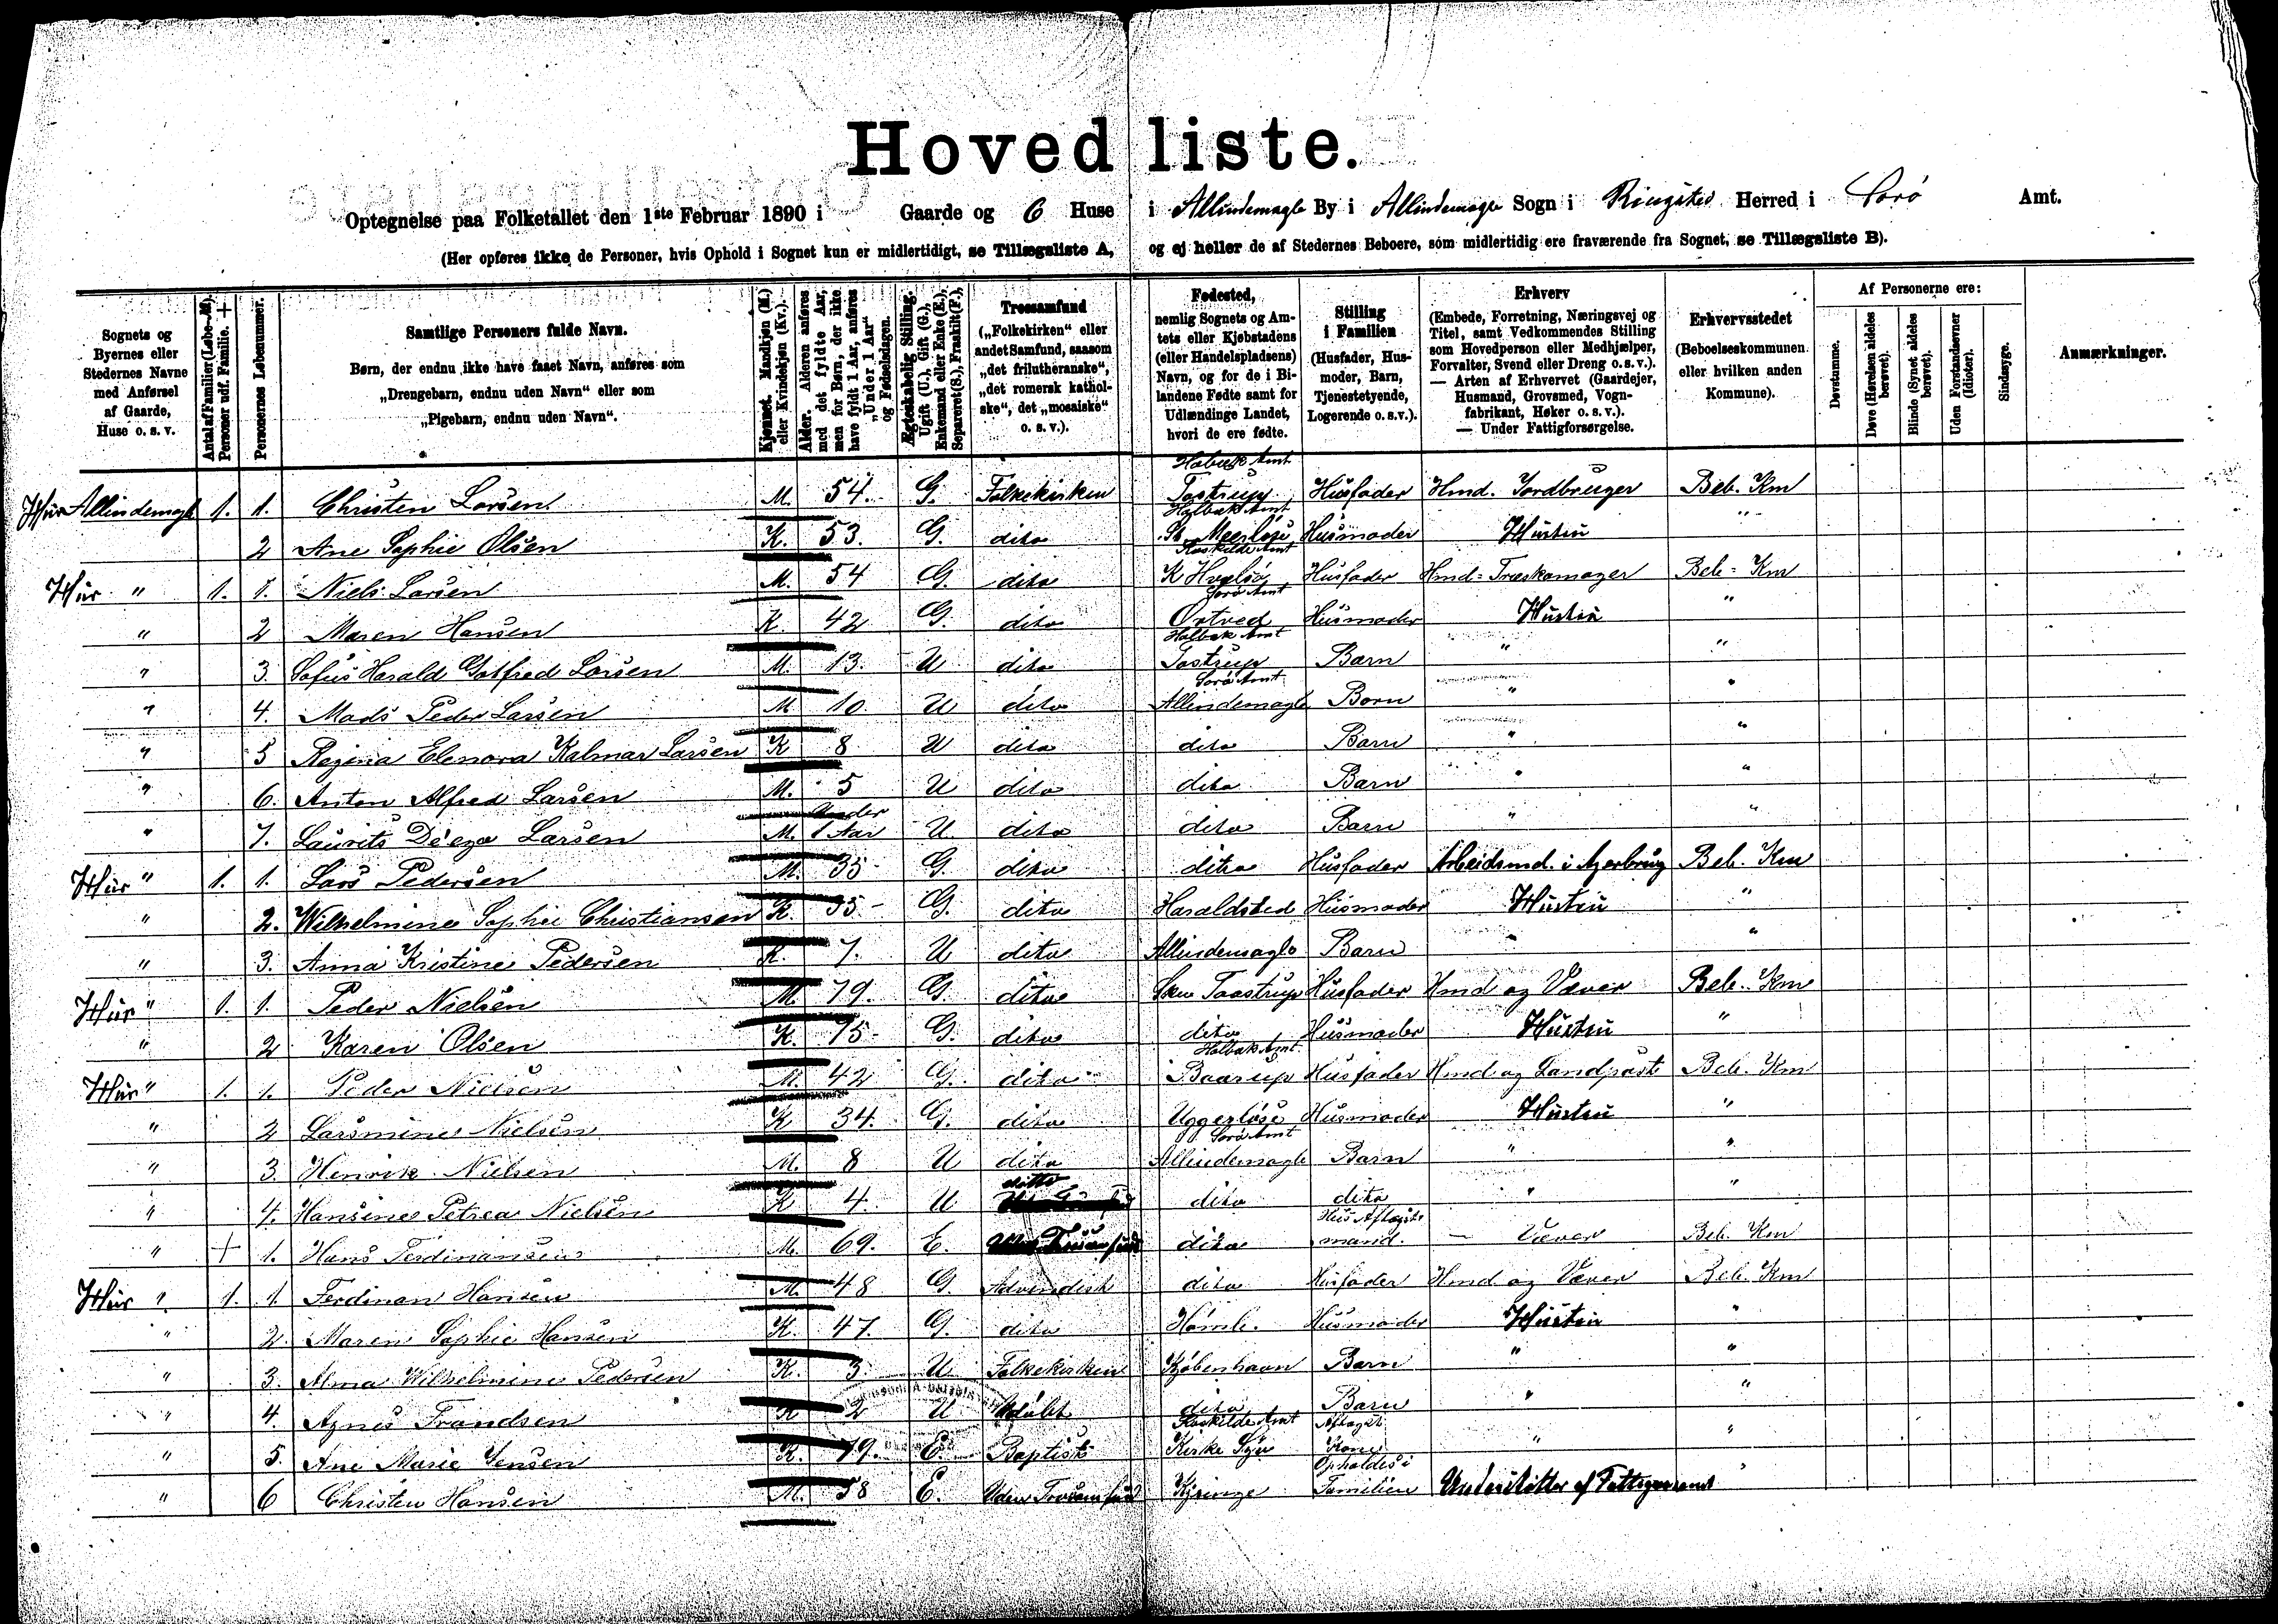 Hovedliste.
Optegnelse paa Folketallet den 1ste Februar 1890 i Gaarde og 6 Huse i Allindemagle By i Allindemagle Sogn i Ringsted Herred i Sorø Amt.
(Her opføres ikke de Personer, hvis Ophold i Sognet kun er midlertidigt, se Tillægsliste A, og ej heller de af Stedernes Beboere, som midlertidig ere fraværende fra Sognet, se Tillægsliste B).
Sognets og Byernes eller Stedernes Navne med Anførsel af Gaarde, Huse o. s. v.
Antal af Familier (Løbe-№). Personer udf. Familie. +
Personernes Løbenummer.
Samtlige Personers fulde Navn.
Børn, der endnu ikke have faaet Navn, anføres som „Drengebarn, endnu uden Navn“ eller som „Pigebarn, endnu uden Navn“.
Kjønnet. Mandkjøn (M.) eller Kvindekjøn (Kv.).
Alder. Alderen anføres med det fyldte Aar, men for Børn, der ikke have fyldt 1 Aar, anføres „Under 1 Aar“ og Fødselsdagen.
Ægteskabelig Stilling. Ugift (U.), Gift (G.), Enkemand eller Enke (E.), Separeret (S.), Fraskilt (F.),
Trossamfund
(„Folkekirken“ eller andet Samfund, saasom „det frilutheranske“, „det romersk katholske“, det „mosaiske“ o. s. v.).
Fødested,
nemlig Sognets og Amtets eller Kjøbstadens (eller Handelspladsens) Navn, og for de i Bilandene Fødte samt for Udlændinge Landet, hvori de ere fødte.
Stilling i Familien
(Husfader, Husmoder, Barn, Tjenestetyende, Logerende o. s.v.).
Erhverv
(Embede, Forretning, Næringsvej og Titel, samt Vedkommendes Stilling som Hovedperson eller Medhjælper, Forvalter, Svend eller Dreng o.s.v.). — Arten af Erhvervet (Gaardejer, Husmand, Grovsmed, Vognfabrikant, Høker o. s. v.). — Under Fattigforsørgelse.
Erhvervsstedet
(Beboelseskommunen eller hvilken anden Kommune).
Af Personerne ere:
Døvstumme.
Døve (Hørelsen aldeles berøvet).
Blinde (Synet aldeles berøvet).
Uden Forstandsevner (Idioter).
Sindssyge.
Anmærkninger.
Hus Allindemagle 1. 1. Christen Larsen M. 54. G. Folkekirken Tostrup, Holbæk Amt Husfader Hmd. Jordbruger Beb. Km
2 Ane Sophie Olsen K. 53. G. dito St. Meerløse, Holbæk Amt Husmoder Hustru "
Hus " 1. 1. Niels Larsen M. 54 G. dito K Hvalsø, Roskilde Amt Husfader Hmd= Træskomager Beb= Km
" 2 Maren Hansen K. 42 G. dito Ørtved, Sorø Amt Husmoder Hustru "
" 3. Sofus Harald Gotfred Larsen M. 13. U dito Tostrup, Holbæk Amt Barn " "
" 4. Mads Peder Larsen M 10 U dito Allindemagle Sorø Amt Barn " "
" 5 Regina Elenora Kalmar Larsen K 8 U dito dito Barn " "
" 6. Anton Alfred Larsen M. 5 U dito dito Barn " "
" 7. Laurits Larsen M. Under 1 Aar U. dito dito Barn " "
Hus " 1. 1. Lars Pedersen M. 35 G. dito dito Husfader Arbeidsmd. i Agerbrug Beb. Km
" 2. Wilhelmine Sophie Christiansen K. 35 G. dito Haraldsted Husmoder Hustru "
" 3. Anna Kristine Pedersen K. 7. U dito Allindemagle Barn " "
Hus " 1. 1. Peder Nielsen M 79. G. dito Taastrup Husfader Hmd og Væver Beb. Km
" 2 Karen Olsen K. 75 G. dito dito Husmoder Hustru "
Hus " 1. 1. Peder Nielsen M. 42 G. dito Baarup Holbæk Amt Husfader Hmd og Landpost Beb. Km
" 2 Larsmine Nielsen K 34. G. dito Uggerløse Husmoder Hustru "
" 3. Henrik Nielsen M. 8 U dito Allindemagle Sorø Amt Barn " "
" 4. Hansine Petrea Nielsen K 4 U ditto dito dito " "
" + 1. Hans Ferdinansen M. 69. E. dito Hus Aftægtsmand. — Væver Beb. Km
Hus " 1. 1. Ferdinan Hansen M. 48 G. Advendisk dito Husfader Hmd og Væver Beb. Km
" 2. Maren Sophie Hansen K. 47. G. dito Husmoder Hustru "
" 3. Alma Wilhelmine Pedersen K. 3. U Folkekirken Kjøbenhavn Barn " "
" 4. Agnes Frandsen K 2 U Udøbt dito Barn " "
" 5. Ane Marie Jensen K. 79. E. Baptist Roskilde Amt Aftægts Kone " "
" 6 Christen Hansen M. 58 E. Uden Trosamfund Kjeringe Opholdes i Familien Understøttes af Fattigvæsenet "